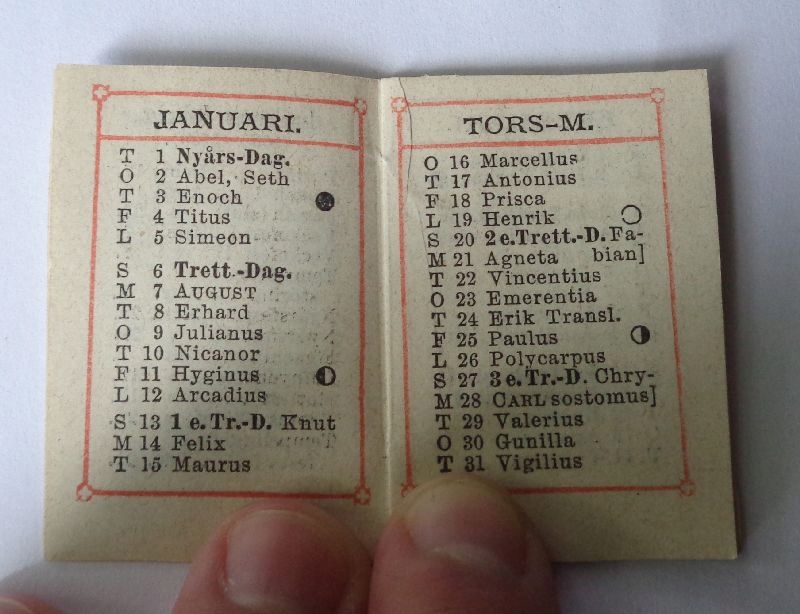 JANUARI.
T 1 Nyårs-Dag.
O 2 Abel, Seth
T 3 Enoch
F 4 Titus
L 5 Simeon
S 6 Trett.-Dag.
M 7 AUGUST
T 8 Erhard
O 9 Julianus
T 10 Nicanor
F 11 Hyginus
L 12 Arcadius
S 13 1 e. Tr.-D. Knut
M 14 Felix
T 15 Maurus
TORS-M.
O 16 Marcellus
T 17 Antonius
F 18 Prisca
L 19 Henrik
S 20 2 e. Trett.-D. Fa-
M 21 Agneta bian]
T 22 Vincentius
O 23 Emerentia
T 24 Erik Transl.
F 25 Paulus
L 26 Polycarpus
S 27 3 e. Tr.-D. Chry-
M 28 CARL sostomus]
T 29 Valerius
O 30 Gunilla
T 31 Vigilius